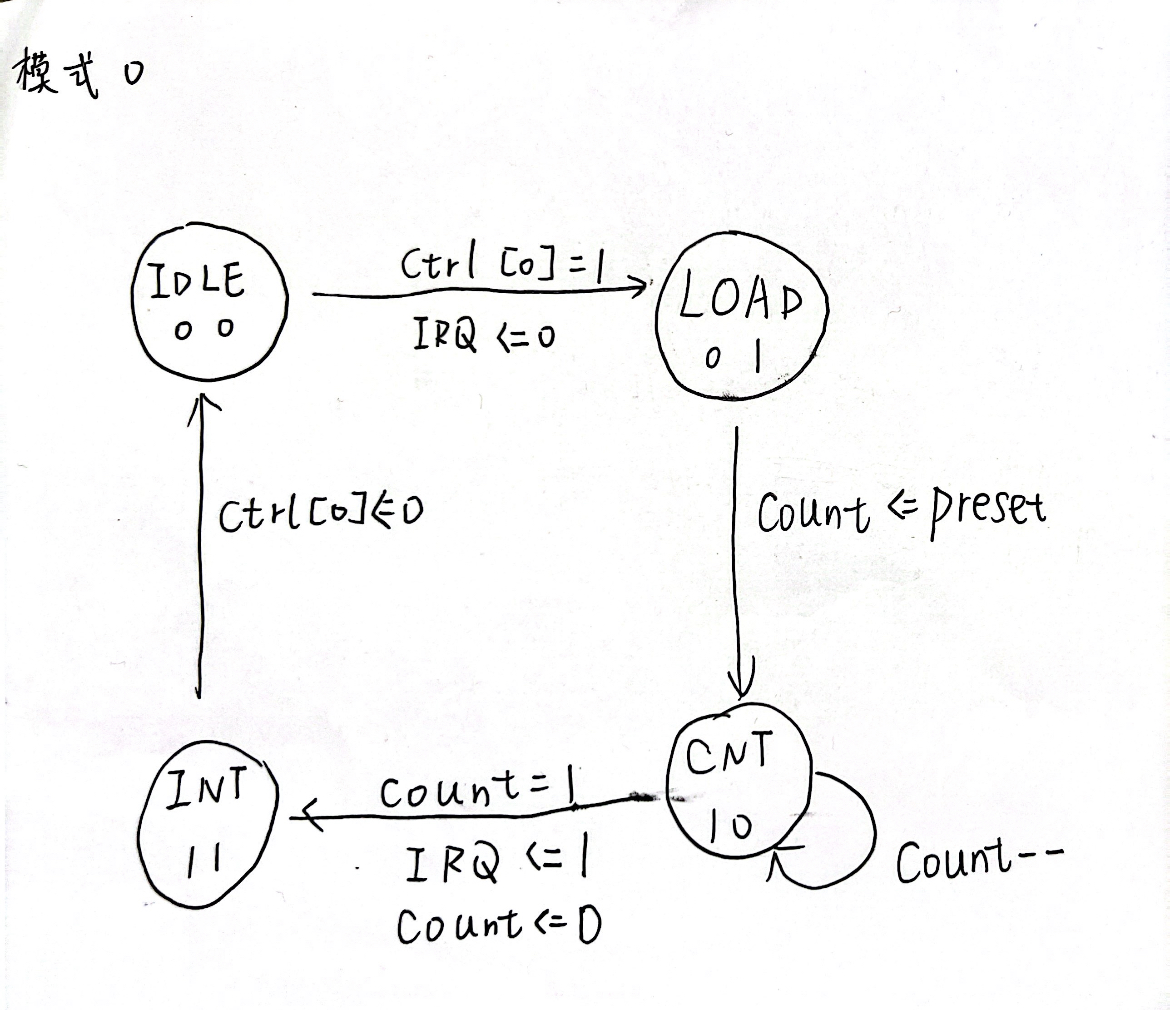 模式 0
IDLE
0 0
Ctrl [0] = 1
IRQ <= 0
LOAD
0 1
Ctrl[0] <= 0
Count <= preset
INT
1 1
Count = 1
IRQ <= 1
Count <= 0
CNT
1 0
Count--